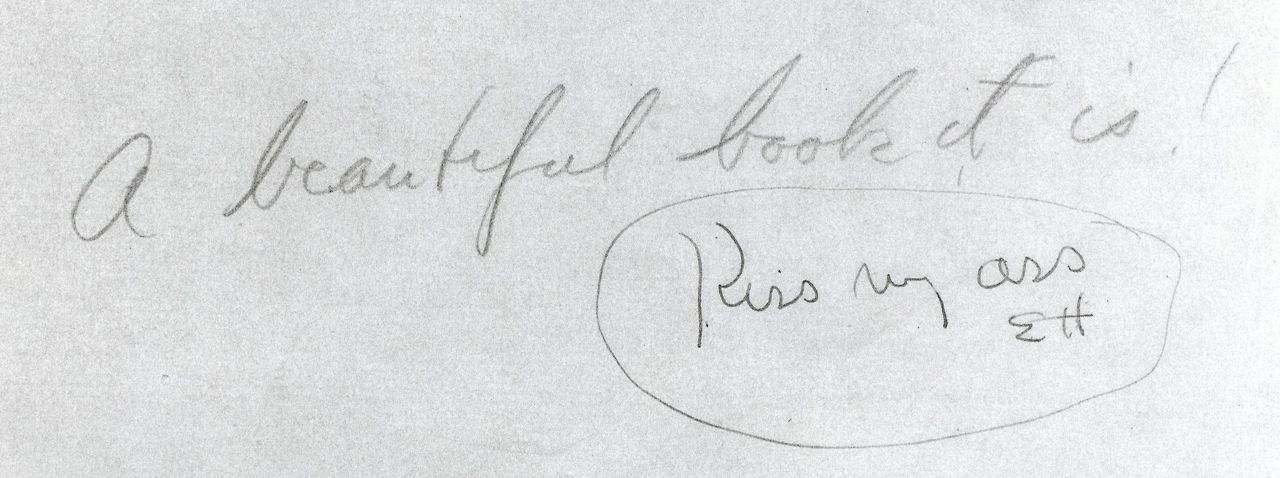 A beautiful book it is!
Kiss my ass
EH